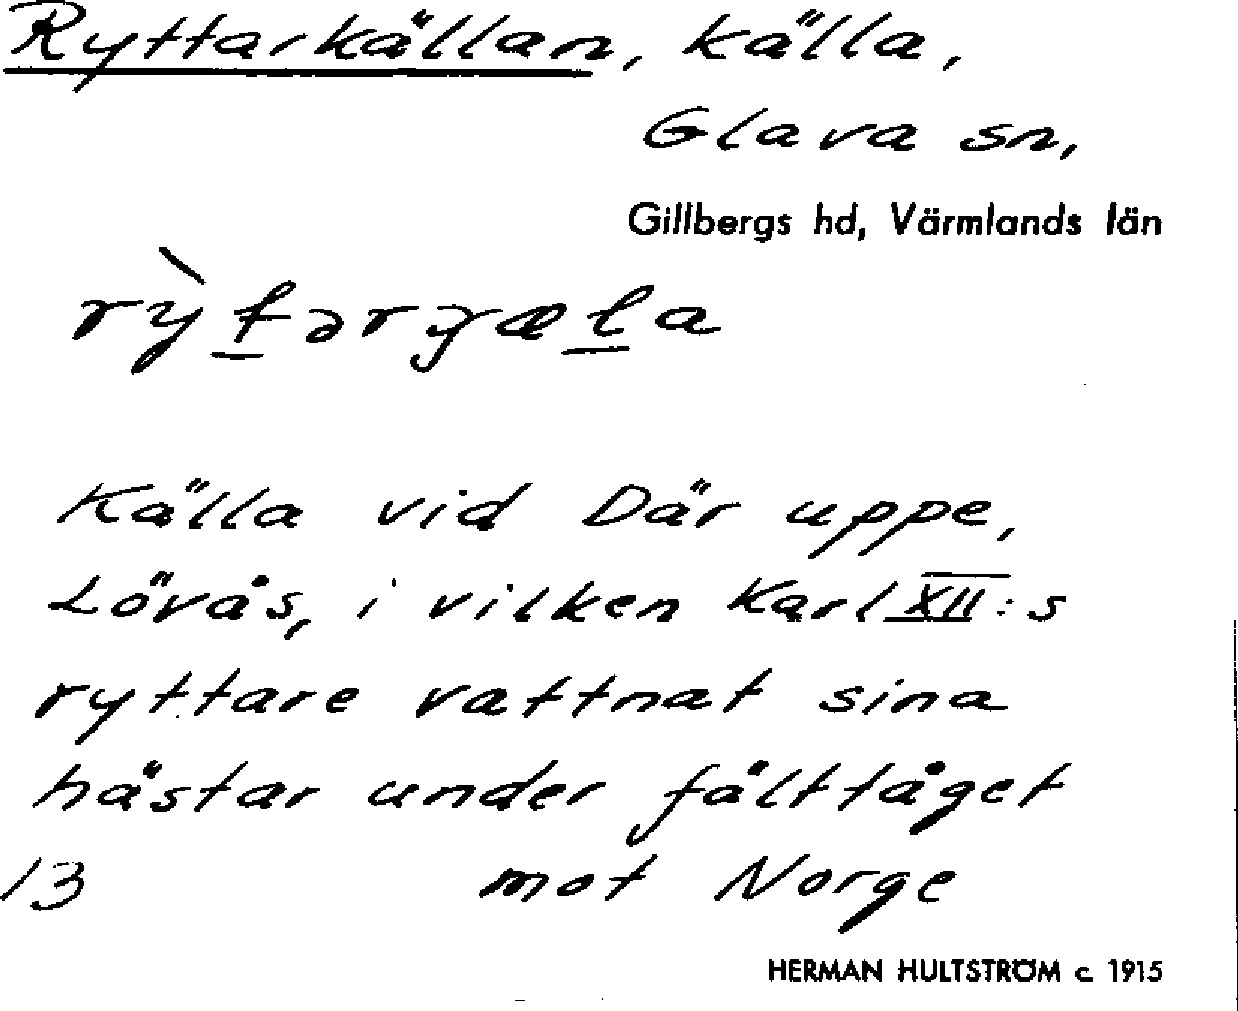 Ryttarkällan, källa,
Glava sn,
Gillbergs hd, Värmlands län
rỳt̲ərɣæl̲a
Källa vid Där uppe,
Lövås, i vilken Karl XII:s
ryttare vattnat sina
hästar under fälttåget
13 mot Norge
HERMAN HULTSTRÖM c 1915